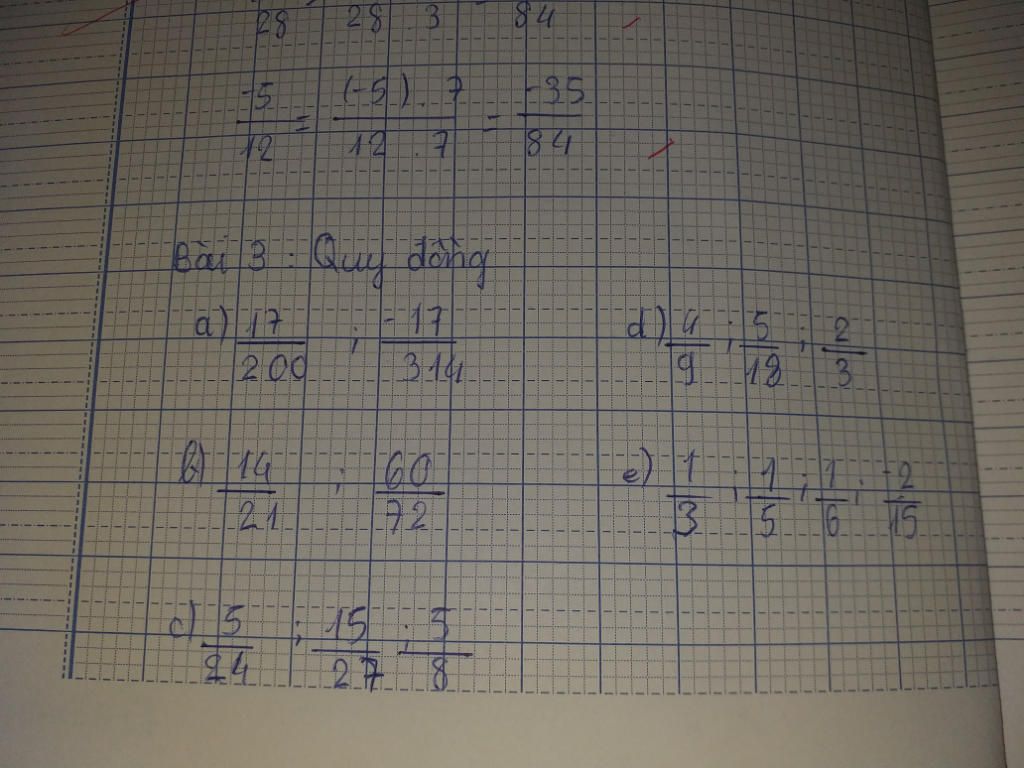 28 28 3 84
-5/12 = (-5).7/12.7 = -35/84
Bài 3: Quy đồng
a) 17/200 ; -17/314
d) 4/9 ; 5/18 ; 2/3
b) 14/21 ; 60/72
e) 1/3 ; 1/5 ; 1/6 ; -2/15
c) 5/24 ; 15/27 ; 5/8